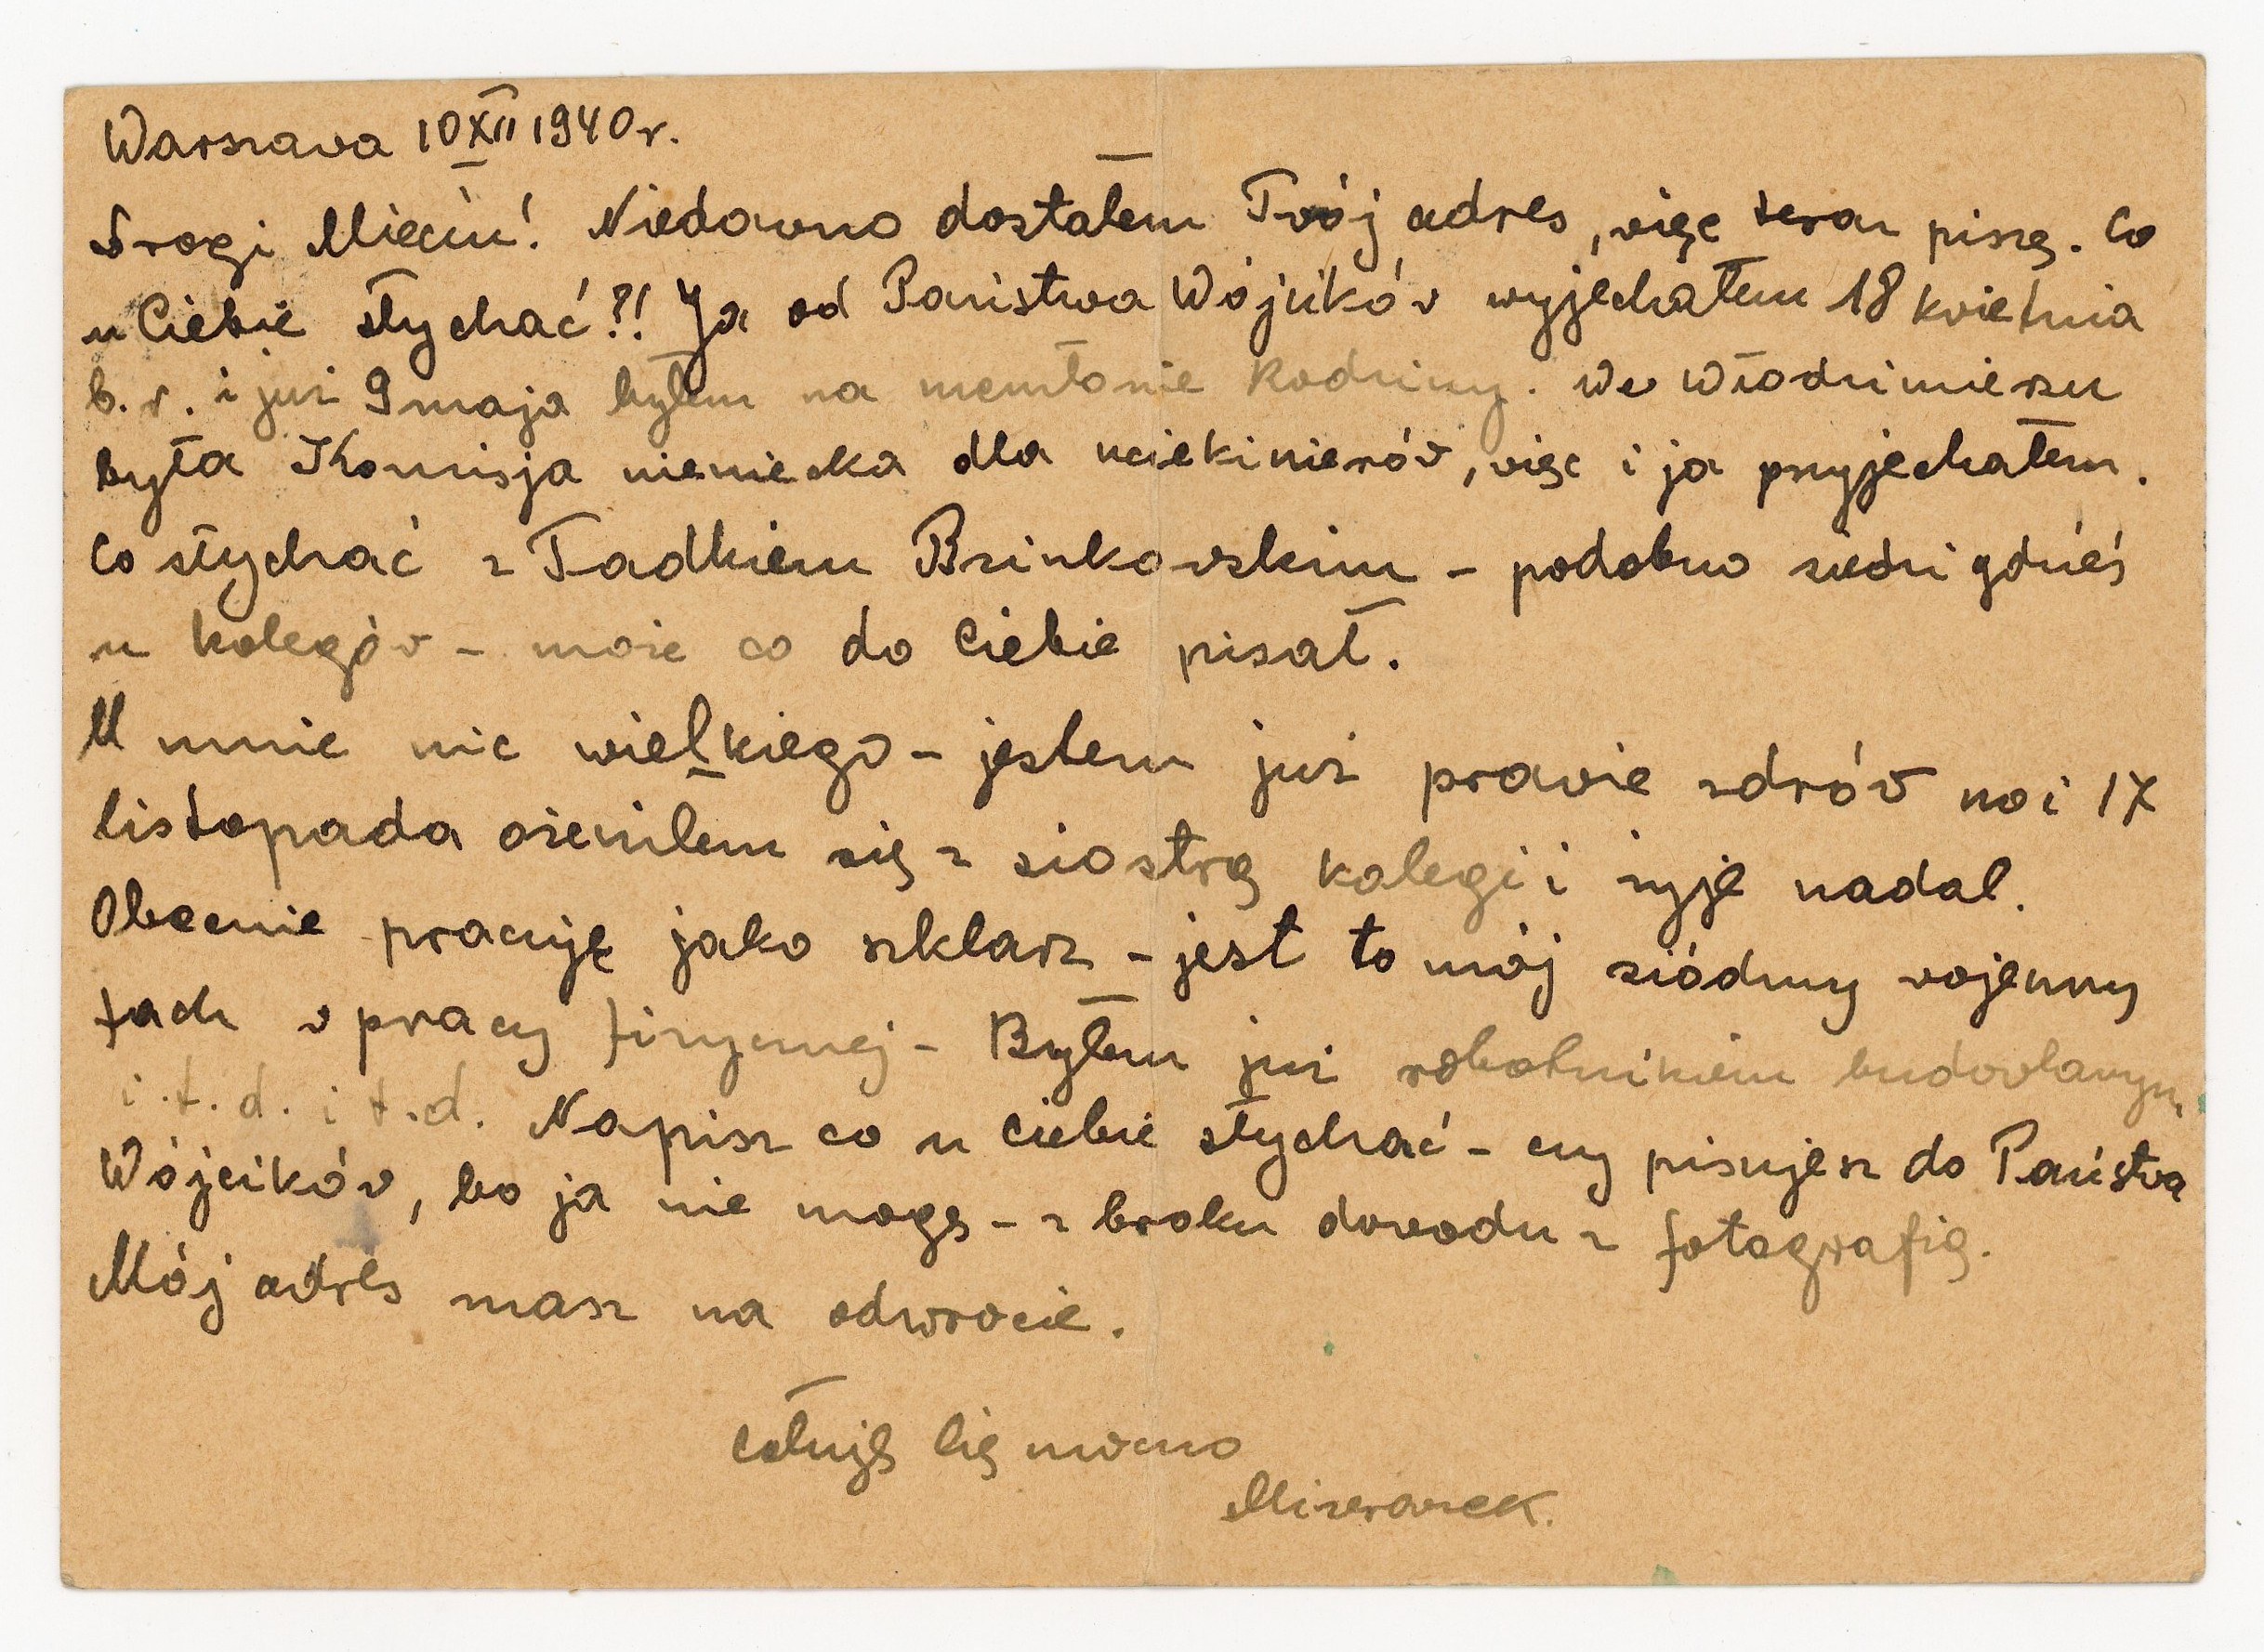 Warszawa 10 XII 1940 r.
Drogi Mieciu! Niedawno dostałem Twój adres, więc teraz piszę. Co
u Ciebie słychać?! Ja od Państwa Wójcików wyjechałem 18 kwietnia
b. r. i już 9 maja byłem na łonie Rodziny. We Włodzimierzu
była Komisja niemiecka dla uciekinierów, więc i ja przyjechałem.
Co słychać z Tadkiem - podobno siedzi gdzieś
u kolegów - może co do Ciebie pisał.
U mnie nic wielkiego - jestem już prawie zdrów no i 17
listopada ożeniłem się z siostrą kolegi i żyję nadal.
Obecnie pracuję jako szklarz - jest to mój siódmy wojenny
fach w pracy fizycznej - Byłem już robotnikiem budowlanym,
i.t.d. i t.d. Napisz co u Ciebie słychać - czy pisujesz do Państwa
Wójcików, bo ja nie mogę - z braku dowodu z fotografią.
Mój adres masz na odwrocie.
Całuję Cię mocno